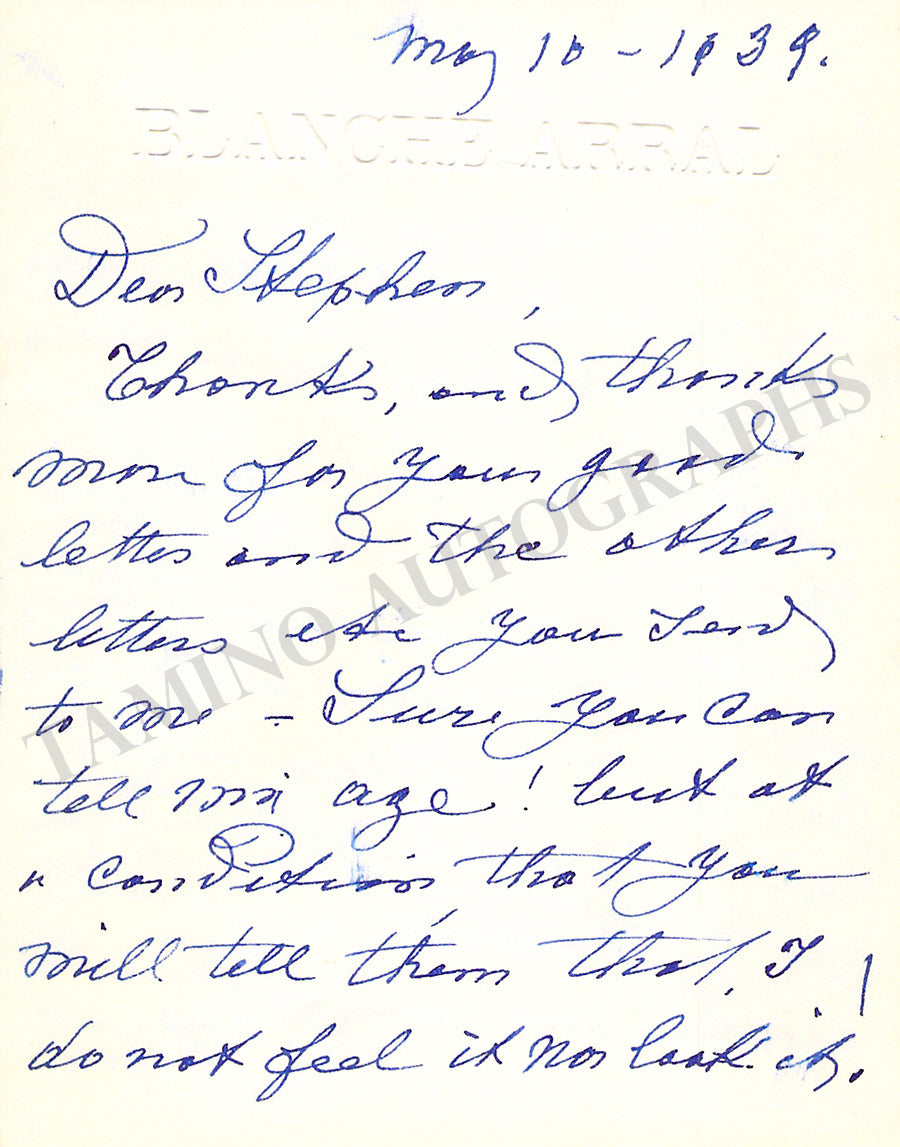 May 10 - 1939.
BLANCHE ARRAL
Dear Stephen,
Thanks, and thanks
more for your good
letter and the other
letters etc you send
to me - Sure you can
tell mi age! but at
a condition that you
will tell them that, I
do not feel it nor look it!
TAMINO AUTOGRAPHS